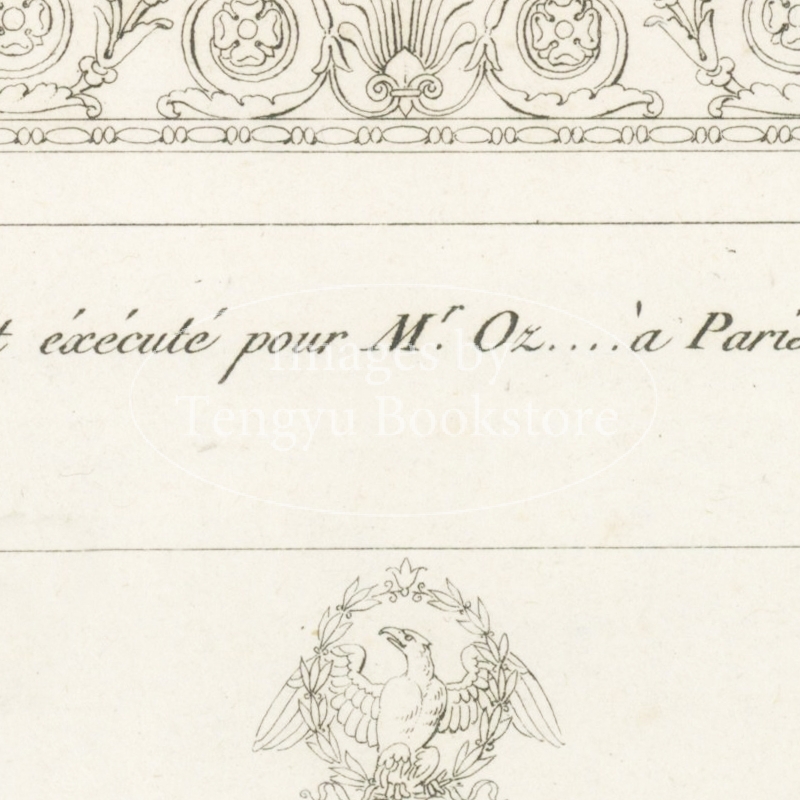 éxécuté pour Mr. Oz....à Paris
Images by
Tengyu Bookstore